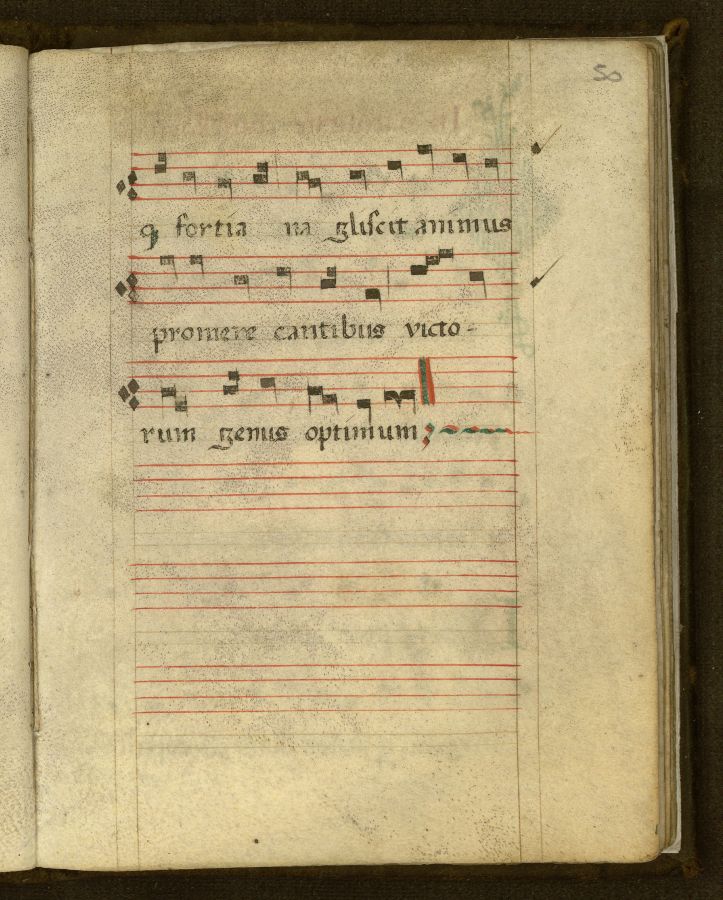 50
qꝫ fortia na gliscit animus
promere cantibus victo-
rum genus optimum;